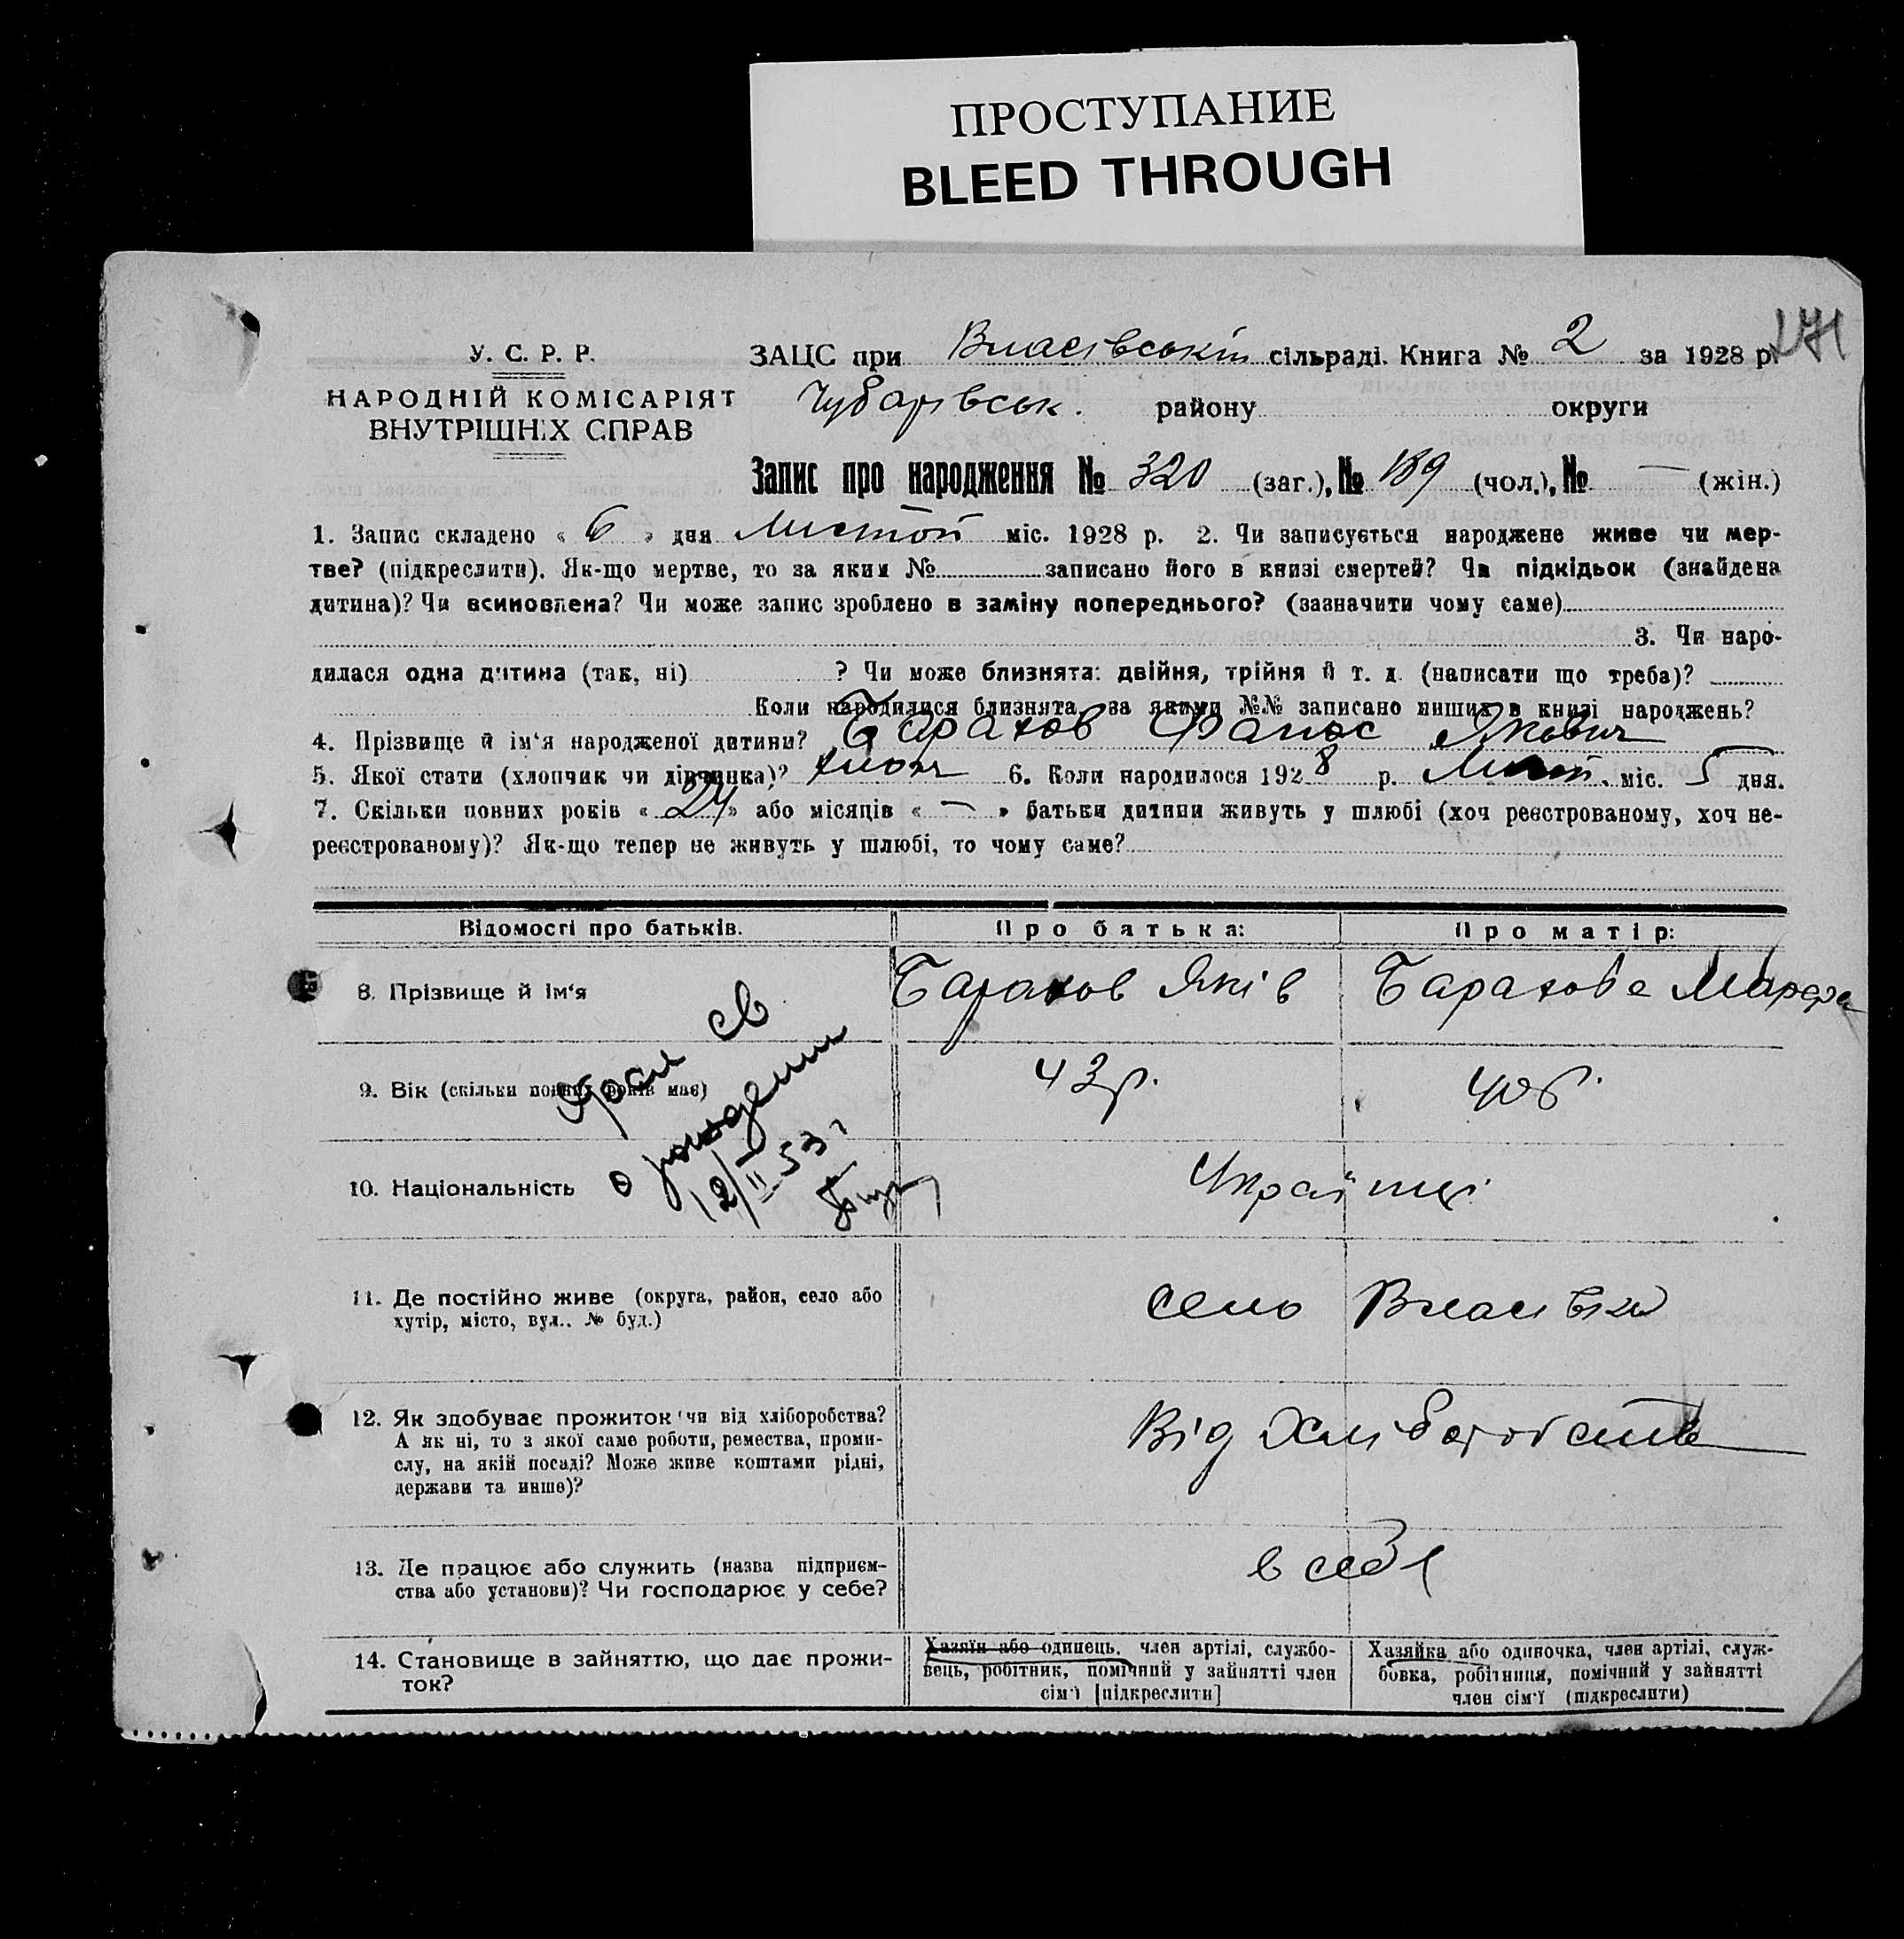 ПРОСТУПАНИЕ
BLEED THROUGH
271
У. С. Р. Р.
НАРОДНІЙ КОМІСАРІЯТ
ВНУТРІШНІХ СПРАВ
ЗАЦС при Власівській сільраді. Книга № 2 за 1928 р.
Чубарівськ. району округи
Запис про народження № 320 (заг.), № 189 (чол.), № — (жін.)
1. Запис складено « 6 » дня Листоп міс. 1928 р. 2. Чи записується народжене живе чи мер-
тве? (підкреслити). Як-що мертве, то за яким № записано його в книзі смертей? Чи підкідьок (знайдена
дитина)? Чи всиновлена? Чи може запис зроблено в заміну попереднього? (зазначити чому саме)
3. Чи наро-
дилася одна дитина (так, ні) ? Чи може близнята: двійня, трійня й т. д. (написати що треба)?
Коли народилися близнята, за якими №№ записано инших в книзі народжень?
4. Прізвище й ім'я народженої дитини? Барахов Фанас Якович
5. Якої стати (хлопчик чи дівчинка)? хлопч 6. Коли народилося 1928 р. Листоп. міс. 5 дня.
7. Скільки повних років « 24 » або місяців « — » батьки дитини живуть у шлюбі (хоч реєстрованому, хоч не-
реєстрованому)? Як-що тепер не живуть у шлюбі, то чому саме?
Відомості про батьків. Про батька: Про матір:
8. Прізвище й ім'я Барахов Яків Барахова Марфа
9. Вік (скільки повних років має) 43 р. 40 р.
св
о рождении
12/II 53 г
10. Національність Українці
11. Де постійно живе (округа, район, село або
хутір, місто, вул.. № буд.) село Власівка
12. Як здобуває прожиток чи від хліборобства?
А як ні, то з якої саме роботи, ремества, проми-
слу, на якій посаді? Може живе коштами рідні,
держави та инше)? Від Хліборобства
13. Де працює або служить (назва підприєм-
ства або установи)? Чи господарює у себе? в себе
14. Становище в зайняттю, що дає прожи-
ток?
Хазяїн або одинець, член артілі, службо-
вець, робітник, помічний у зайнятті член
сім'ї [підкреслити]
Хазяйка або одиночка, член артілі, служ-
бовка, робітниця, помічний у зайнятті
член сім'ї (підкреслити)